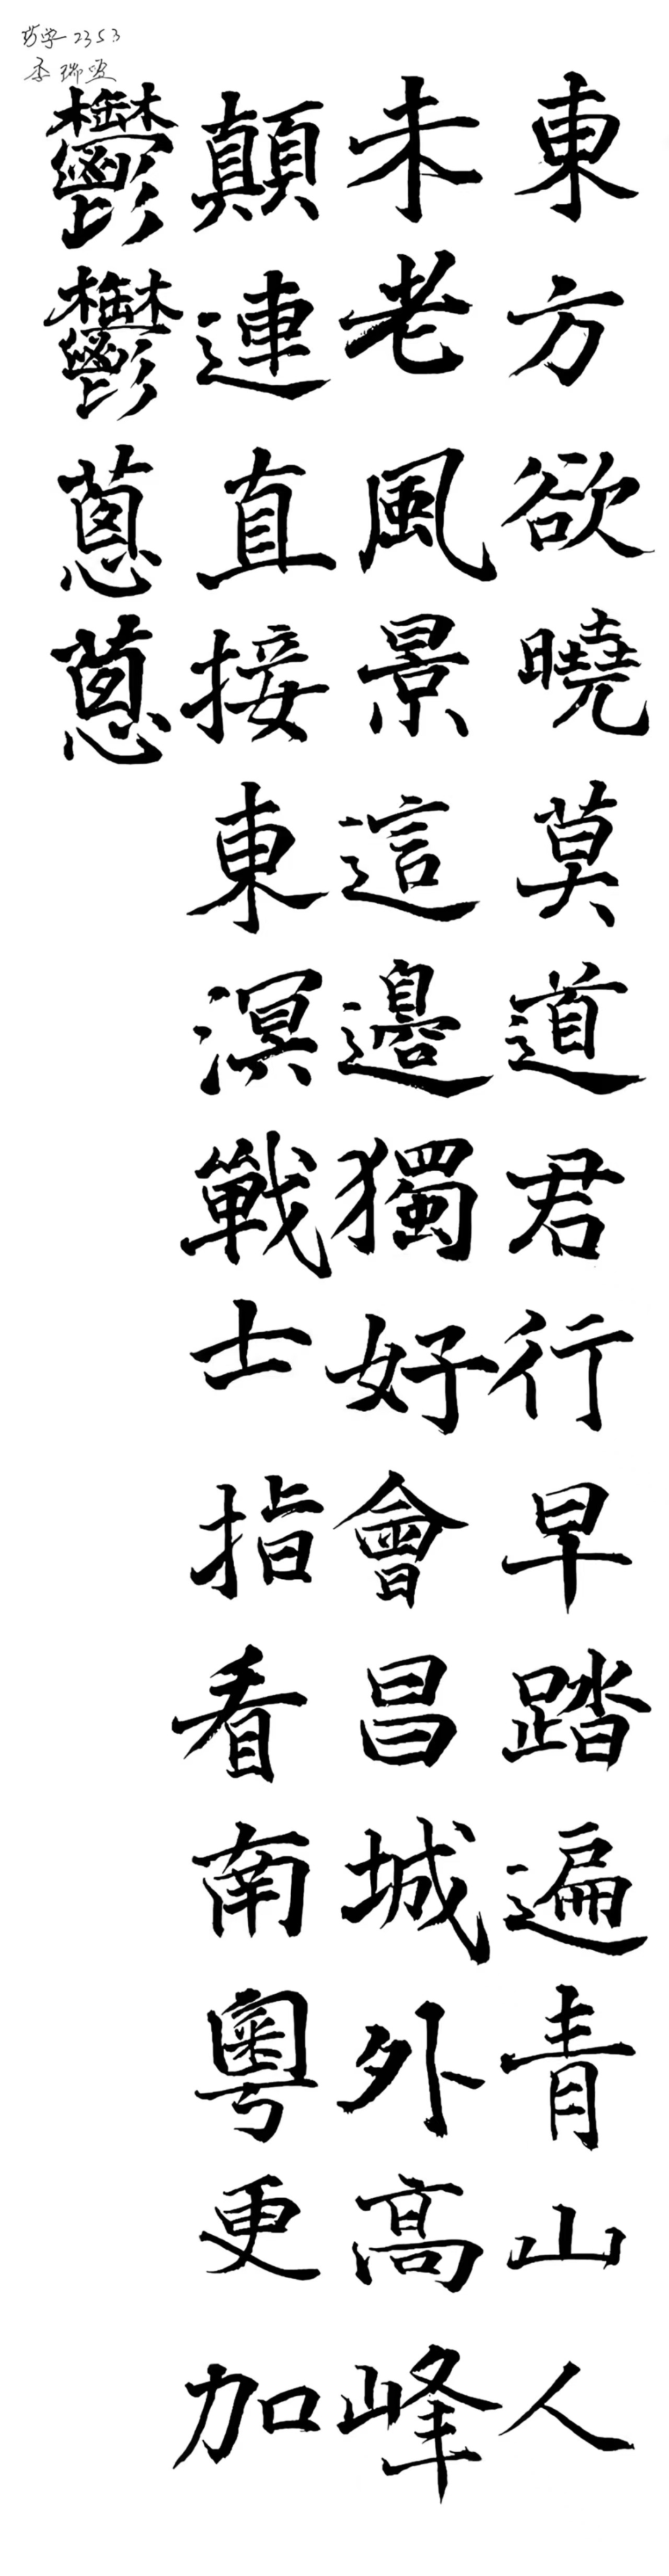 東方欲曉莫道君行早踏遍青山人
未老風景這邊獨好會昌城外高峰
顛連直接東溟戰士指看南粵更加
鬱鬱蔥蔥
药学2353